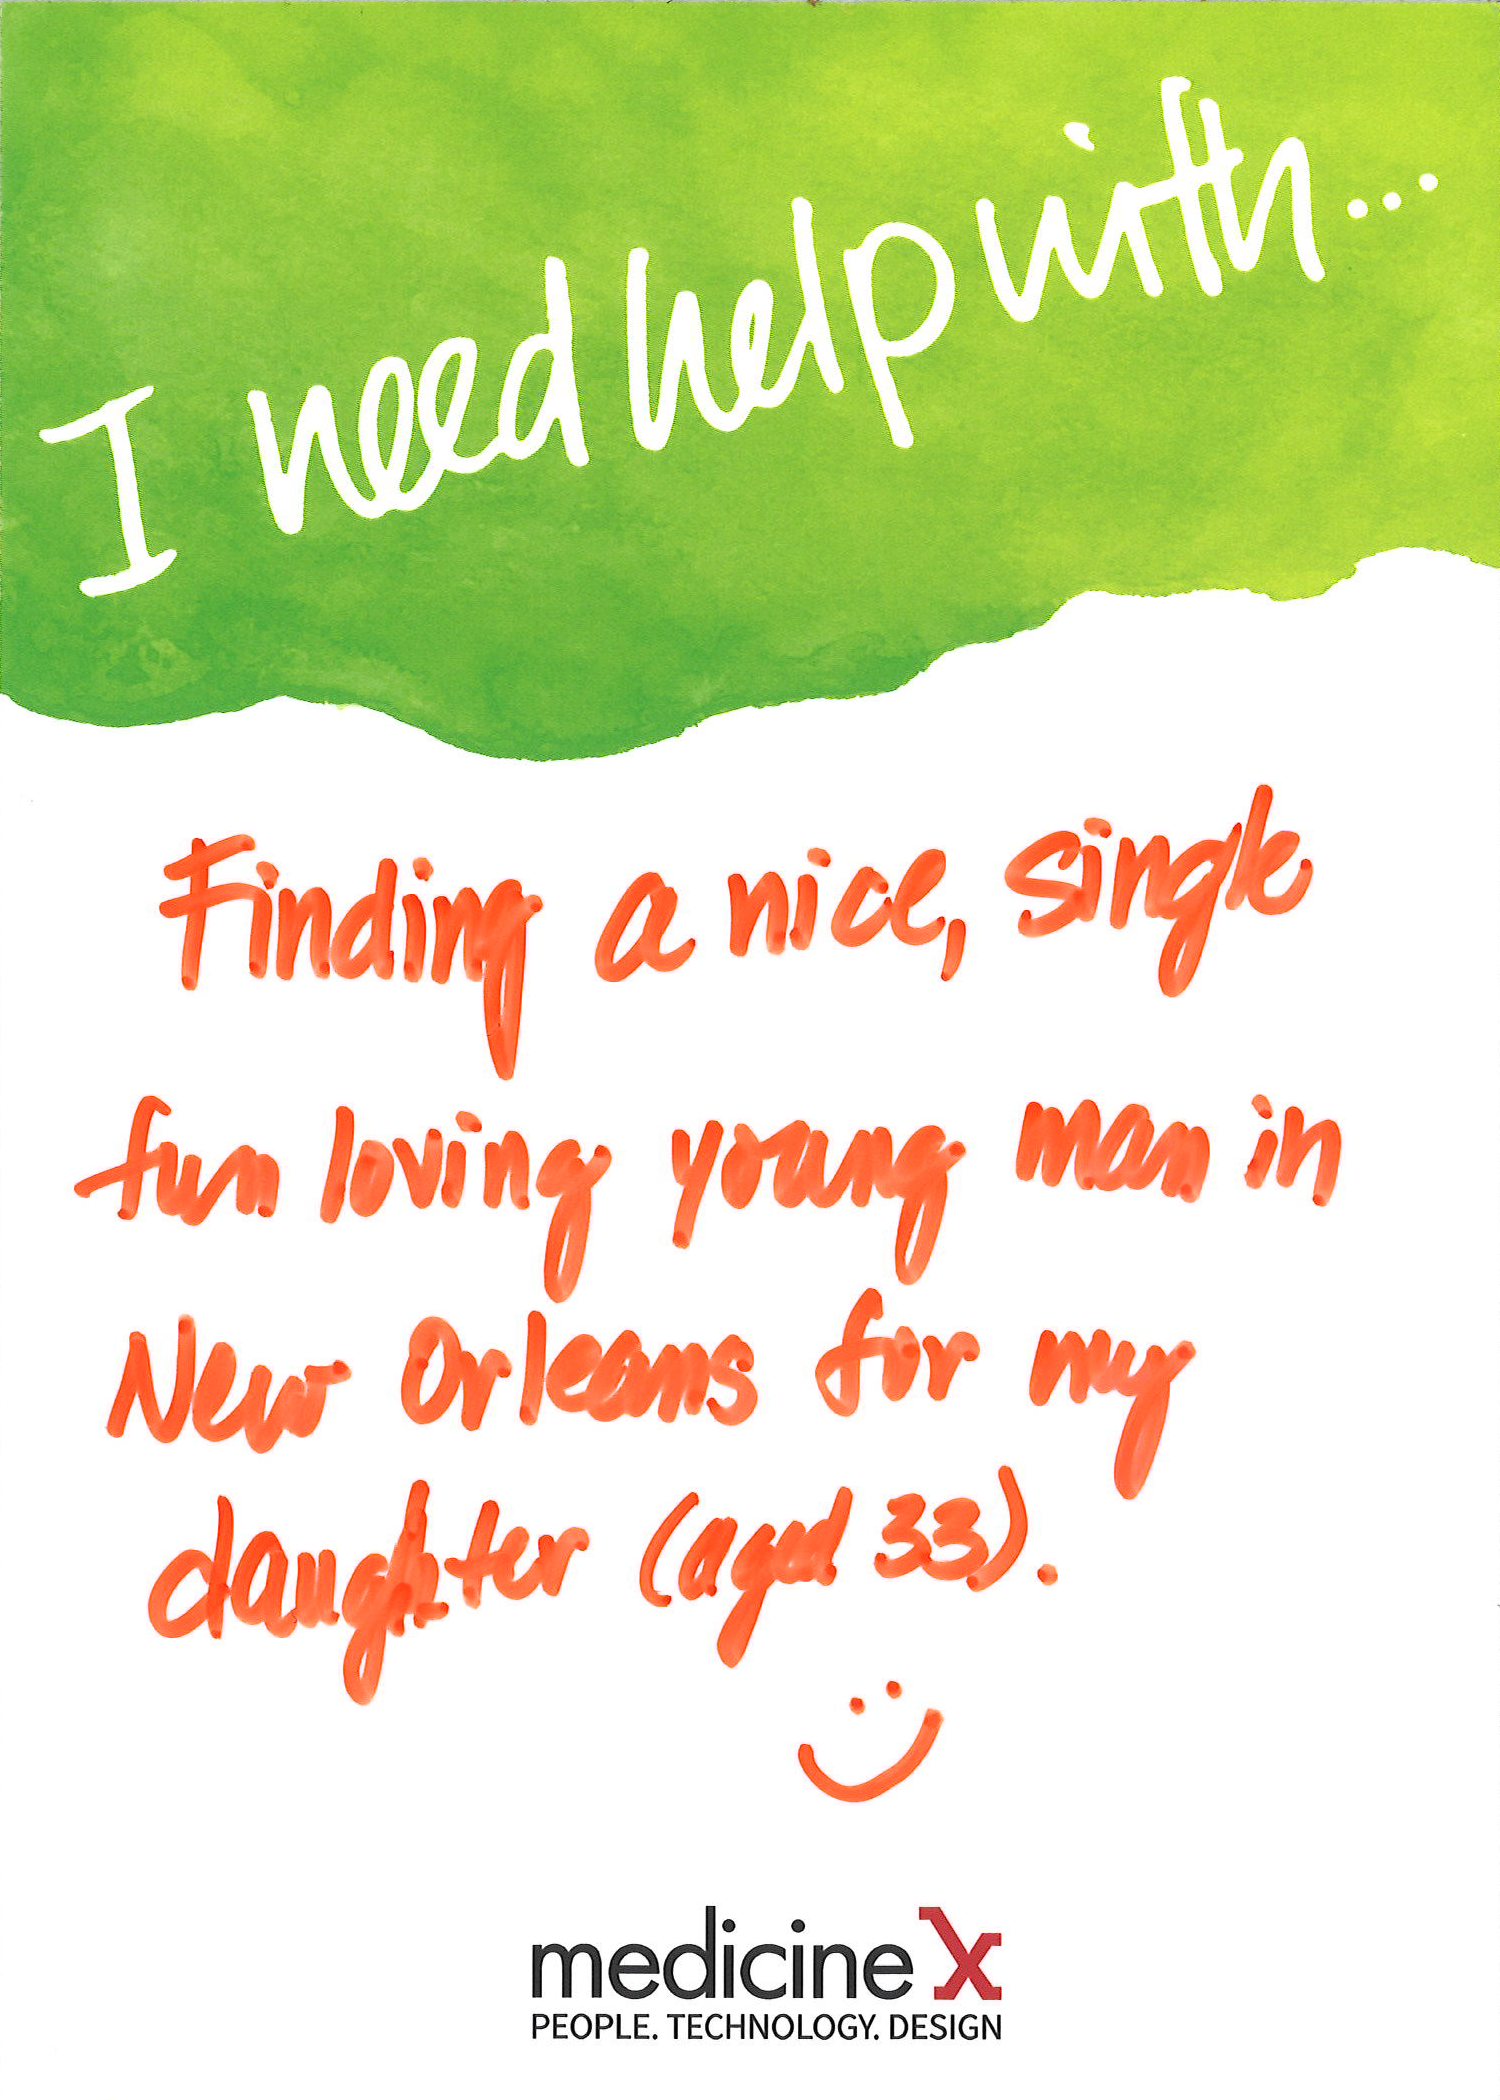 I need help with...
Finding a nice, single
fun loving young man in
New Orleans for my
daughter (aged 33).
medicine X
PEOPLE. TECHNOLOGY. DESIGN